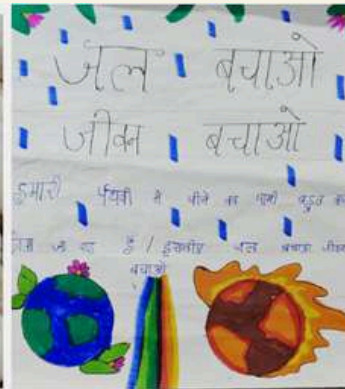 जल बचाओ
जीवन बचाओ
हमारी पृथ्वी में पीने का पानी बहुत
जा रहा है / इसलीए जल बचाओ जीवन
बचाओ